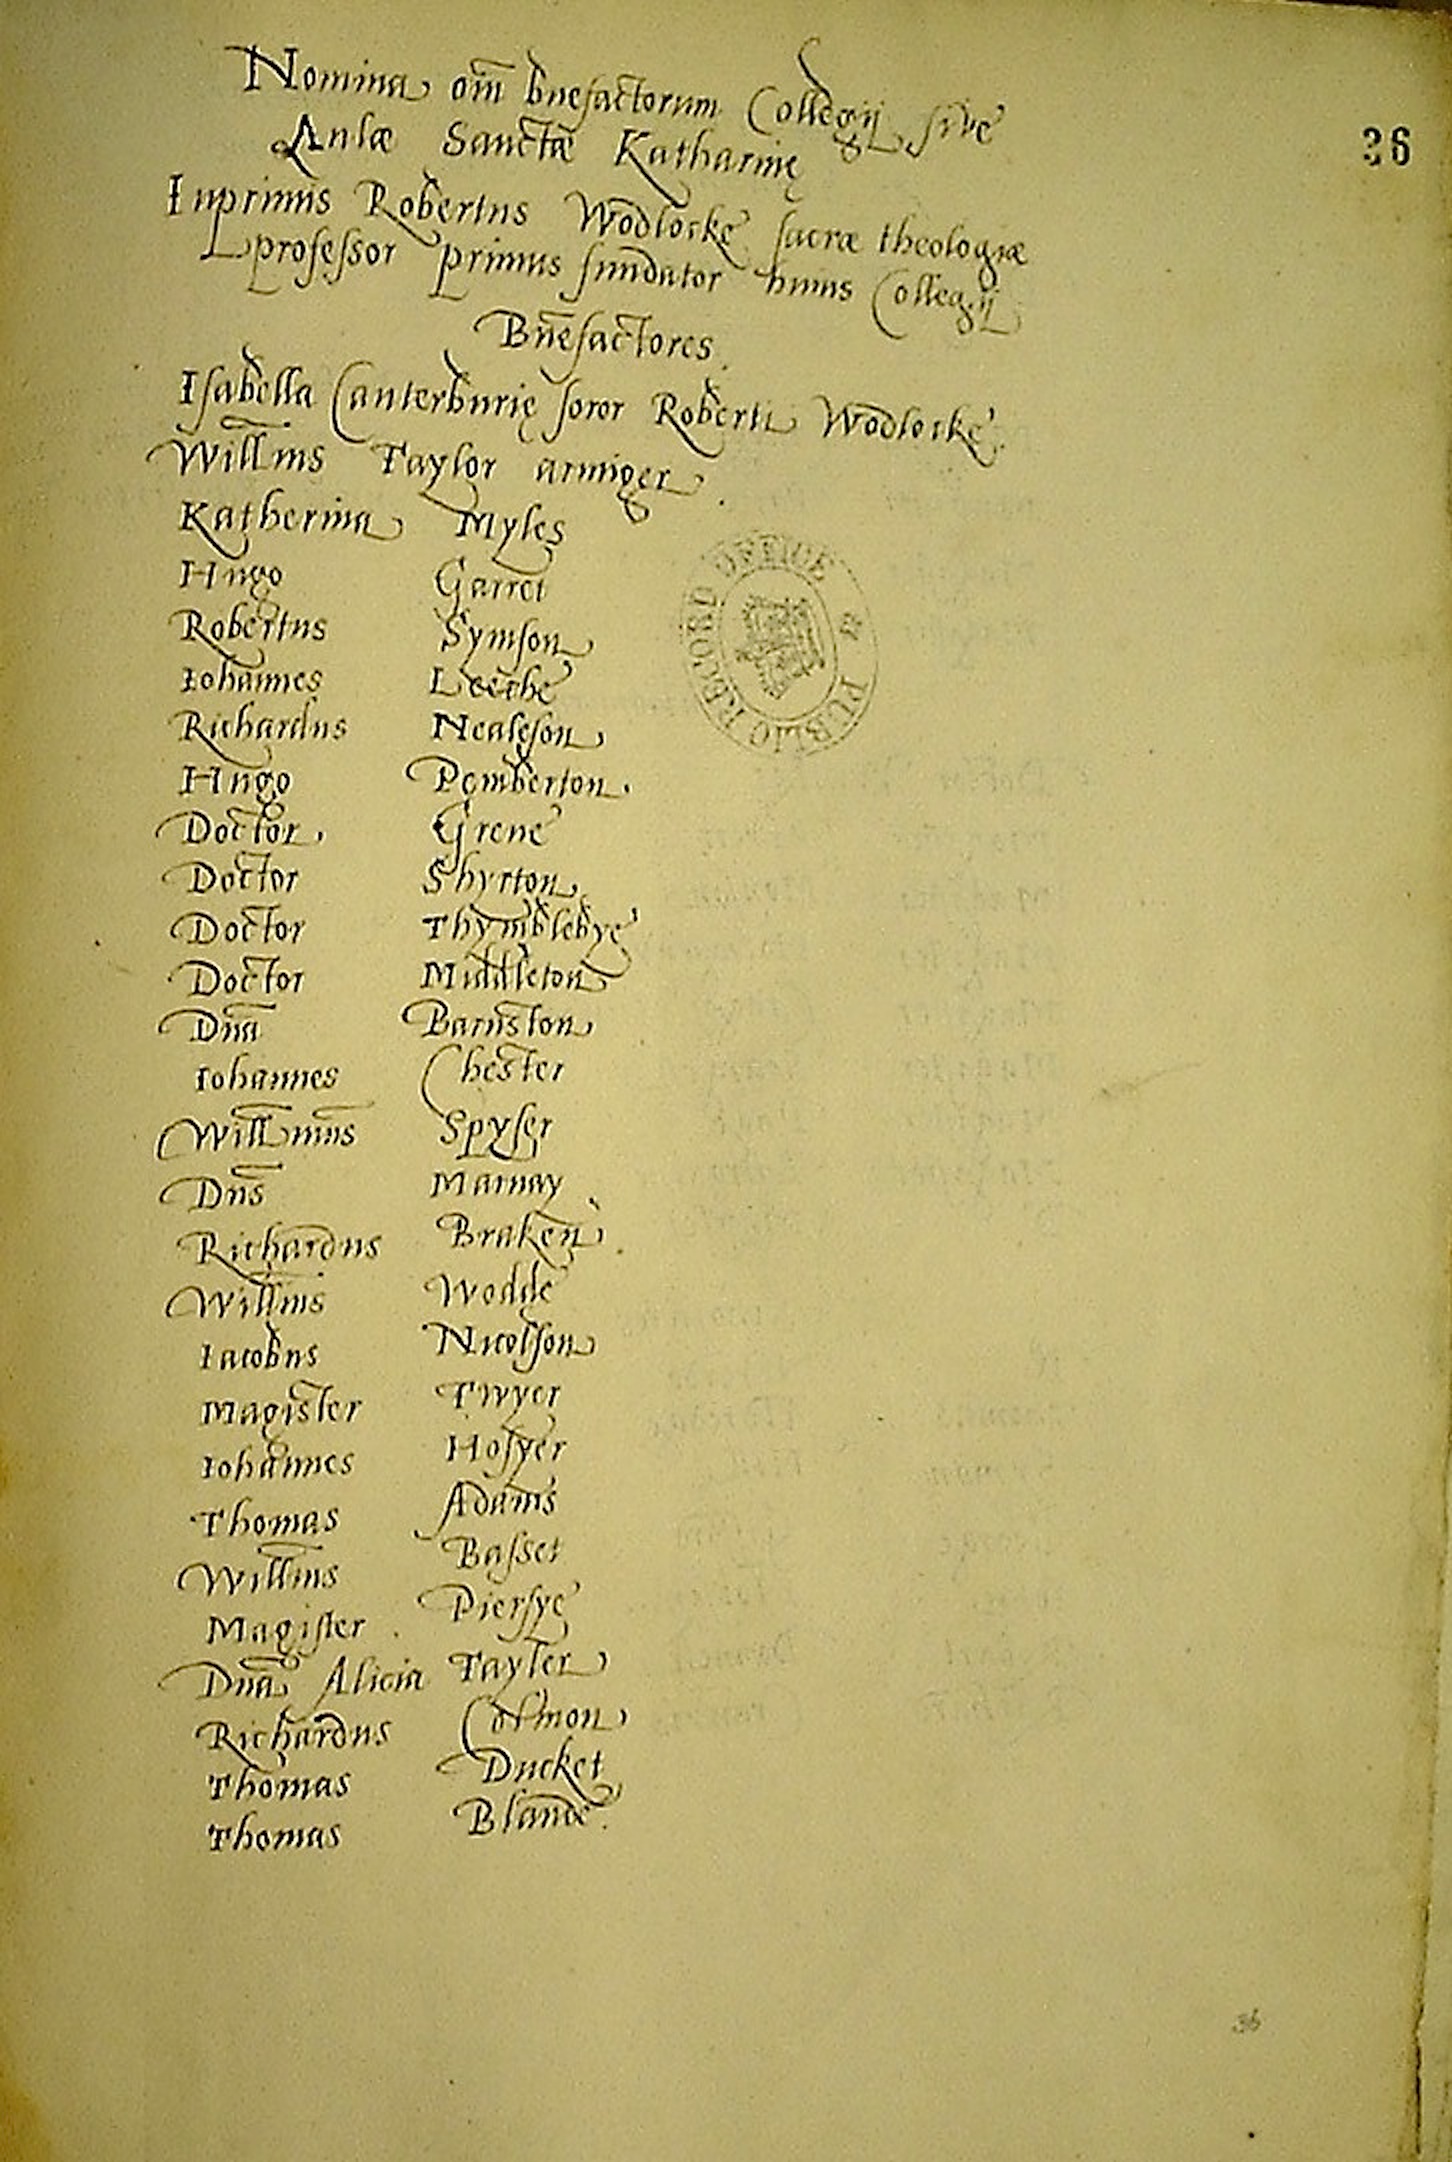 Nomina om̄ bnefactorum Collegij sive
Aulæ Sanctæ Katharinę
Inprimis Robertus Wodlocke sacræ theologiæ
professor primus fundator huius Collegij
36
Bn̄efactores
Isabella Canterburię soror Roberti Wodlocke
Willm̄s Taylor armiger
Katherina Myles
Hugo Garret
Robertus Symson
Iohannes Leeche
Richardus Nealeson
Hugo Pemberton
Doctor Grene
Doctor Shyrton
Doctor Thymblebye
Doctor Middleton
Dn̄a Barnston
Iohannes Chester
Willmus Spyser
Dn̄s Marnay
Richardus Braken
Willm̄s Wodde
Iacobus Nicolson
Magister Twyer
Iohannes Hosyer
Thomas Adams
Willm̄s Basset
Magister Piersye
Dn̄a Alicia Tayler
Richardus Colmon
Thomas Ducket
Thomas Blande
PUBLIC RECORD OFFICE
36